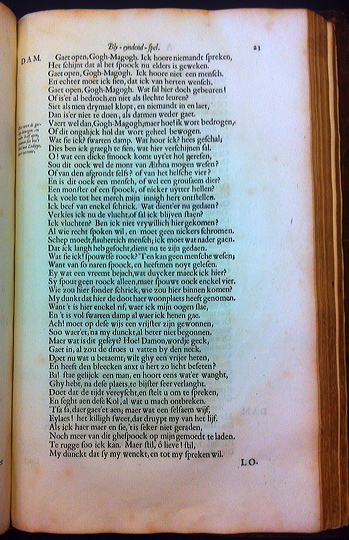 Bly-eyndend-spel. 23
DAM. Gaet open, Gogh-Magogh. Ick hoore niemandt spreken,
Het schijnt dat al het spoock nu elders is geweken.
Gaet open, Gogh-Magogh. Ick hoore niet een mensch.
En echter moet ick sien, dat ick van herten wensch.
Gaet open, Gogh-Magogh. Wat sal hier doch gebeuren!
Of is'er al bedroch, en niet als slechte leuren?
Siet als men drymael klopt, en niemandt in en laet,
Dan is'er niet te doen, als datmen weder gaet.
Veert wel dan, Gogh-Magogh, maer hoe! ik wort bedrogen,
Of dit ongalijck hol dat wort geheel bewogen.
Wat sie ick? swarten damp. Wat hoor ick? hees geschal,
Dies ben ick graegh te sien, wat hier verschijnen sal.
O! wat een dicke smoock komt uyt'er hol geresen,
Sou dit oock wel de mont van Æthna mogen wesen?
Of van den afgrondt selfs? of van het helsche vier?
En is dit oock een mensch, of wel een grousaem dier?
Een monster of een spoock, of nicker uytter hellen?
Ick voele tot het merch mijn innigh hert ontstellen.
Ick beef van enckel schrick. Wat dient'er nu gedaen?
Verkies ick nu de vlucht, of sal ick blijven staen?
Ick vluchten? Ben ick niet vrywillich hier gekomen?
Al wie recht spoken wil, en moet geen nickers schromen.
Schep moedt, slauhertich mensch, ick moet wat nader gaen.
Dat ick langh heb gesocht, dient nu te zijn gedaen.
Wat sie ick! spouwt'e roock? Ten kan geen mensche wesen,
Want van so naren spoock, en heeftmen noyt gelesen.
Ey wat een vreemt bejach, wat duycker maeck ick hier?
Sy spout geen roock alleen, maer spouwt oock enckel vier.
Wie zou hier sonder schrick, wie zou hier binnen komen?
My dunckt dat hier de doot haer woonplaets heeft genomen.
Want 't is hier enckel rif, waer ick mijn oogen slae,
En 't is vol swarten damp al waer ick henen gae.
Ach! moet op dese wijs een vrijster zijn gewonnen,
Soo waer'et, na my dunckt, al beter niet begonnen.
Maer wat is dit geseyt? Hoe! Damon, wordje geck,
Gaet in, al zou de droes u vatten by den neck.
Doet wat u betaemt, wilt ghy een vrijer heten,
En heeft den bleecken anxt u hert zo licht beseten?
Ba! stae gelijck een man, en hoort eens wat'er wanght,
Ghy hebt, na dese plaets, te bijster seer verlanght.
Doet dat de tijdt vereyscht, en stelt u om te spreken,
En seght aen dese Kol, al wat u mach ontbreken.
Tsa sa, daer gaet'et aen, maer wat een selsaem wijf,
Eylaes! het killigh sweet, dat druypt my van het lijf.
Als ick haer maer en sie, 'tis seker niet geraden,
Noch meer van dit ghespoock op mijn gemoedt te laden.
Te rugge soo ick kan. Maer stil, ô lieve! stil,
My dunckt dat sy my wenckt, en tot my spreken wil.
LO-